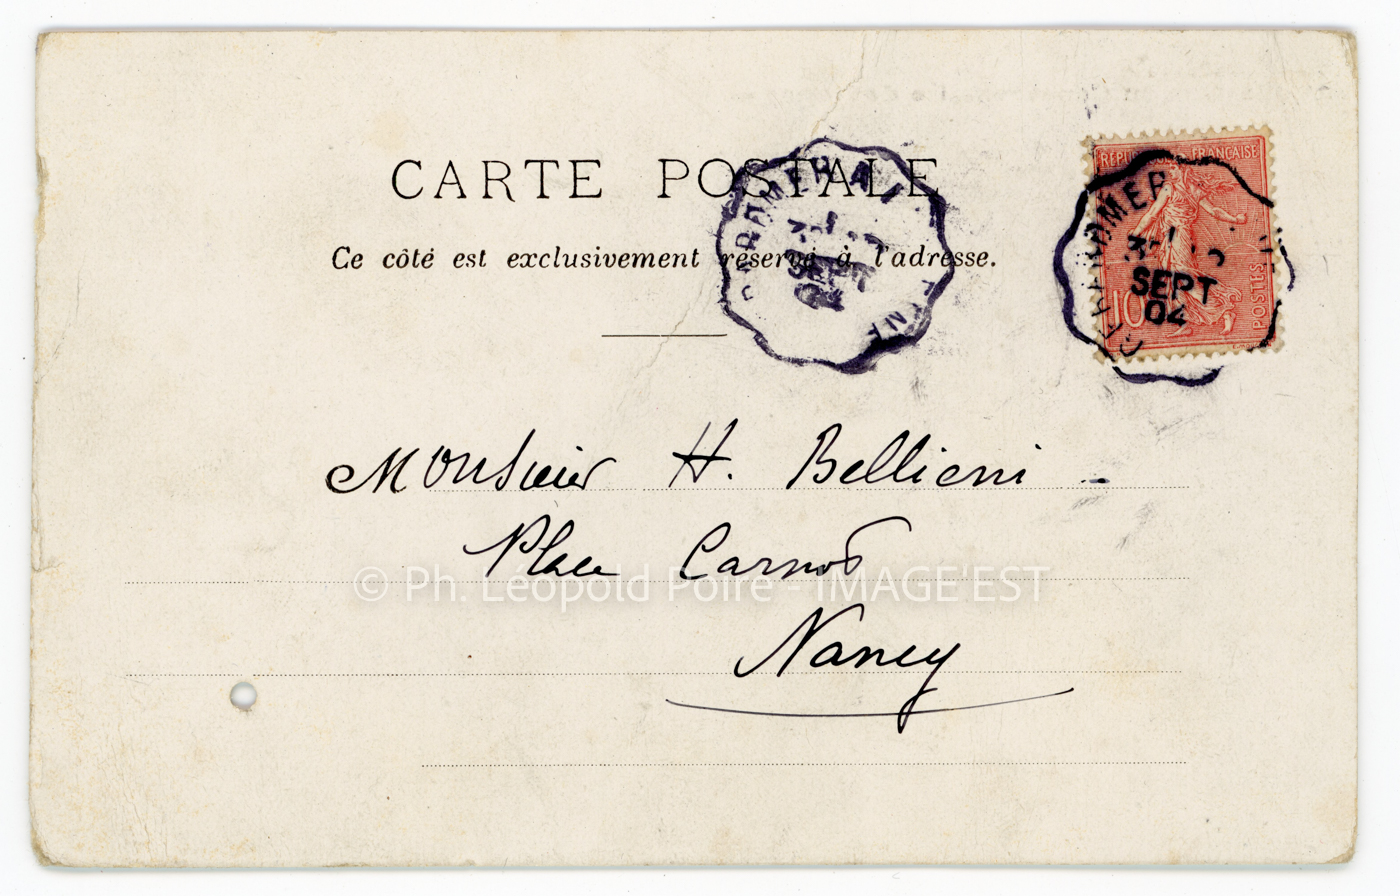 CARTE POSTALE
Ce côté est exclusivement réservé à l'adresse.
RÉPUBLIQUE FRANÇAISE
10
POSTES
SEPT
04
Monsieur H. Bellieni -
Place Carnot
© Ph. Léopold Poiré - IMAGE'EST
Nancy